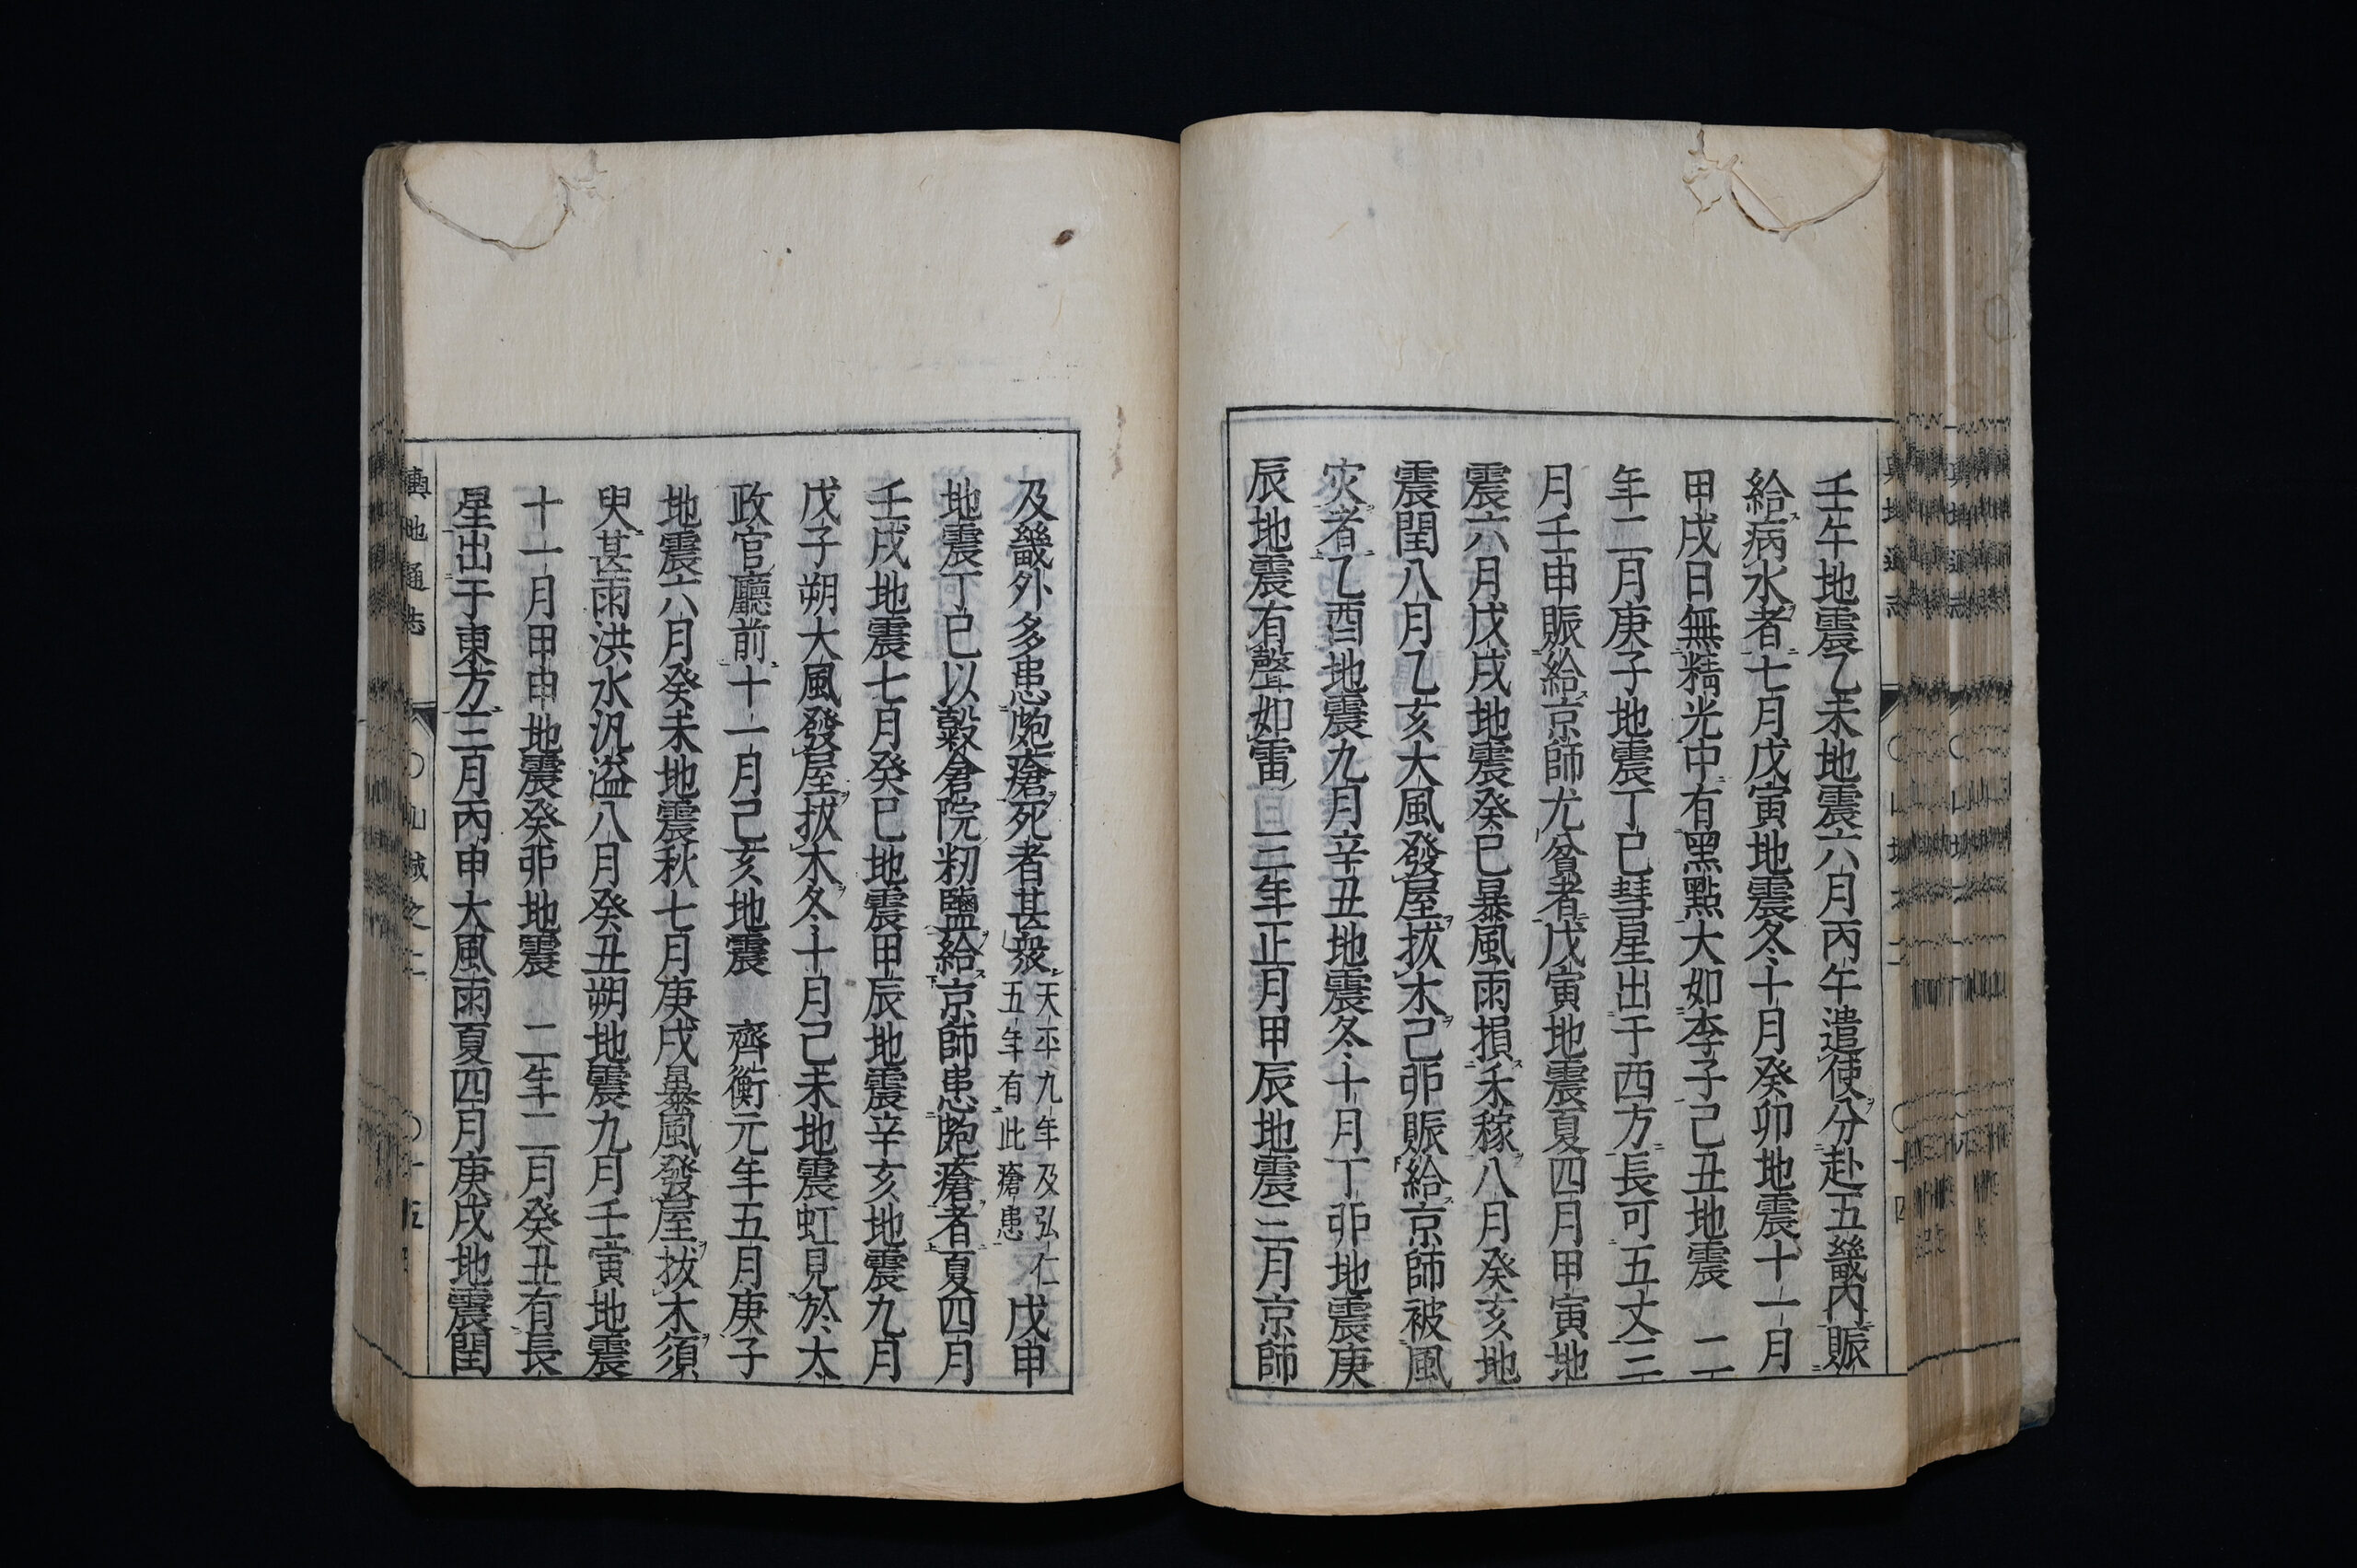 壬午地震乙未地震六月丙午遣使分赴五畿內賑
給病水者七月戊寅地震冬十月癸卯地震十一月
甲戌日無精光中有黑點大如李子己丑地震　二
年二月庚子地震丁巳彗星出于西方長可五丈三
月壬申賑給京師尤貧者戊寅地震夏四月甲寅地
震六月戊戌地震癸巳暴風雨損禾稼八月癸亥地
震閏八月乙亥大風發屋拔木己卯賑給京師被風
灾者乙酉地震九月辛丑地震冬十月丁卯地震庚
辰地震有聲如雷　三年正月甲辰地震三月京師
及畿外多患皰瘡死者甚衆
天平九年及弘仁
五年有此瘡患
戊申
地震丁巳以穀倉院籾鹽給京師患皰瘡者夏四月
壬戌地震七月癸巳地震甲辰地震辛亥地震九月
戊子朔大風發屋拔木冬十月己未地震虹見於太
政官廳前十一月己亥地震　齊衡元年五月庚子
地震六月癸未地震秋七月庚戌暴風發屋拔木須
臾甚雨洪水汎溢八月癸丑朔地震九月壬寅地震
十一月甲申地震癸卯地震　二年二月癸丑有長
星出于東方三月丙申大風雨夏四月庚戌地震閏
輿地通志
〇山城之二
〇十五